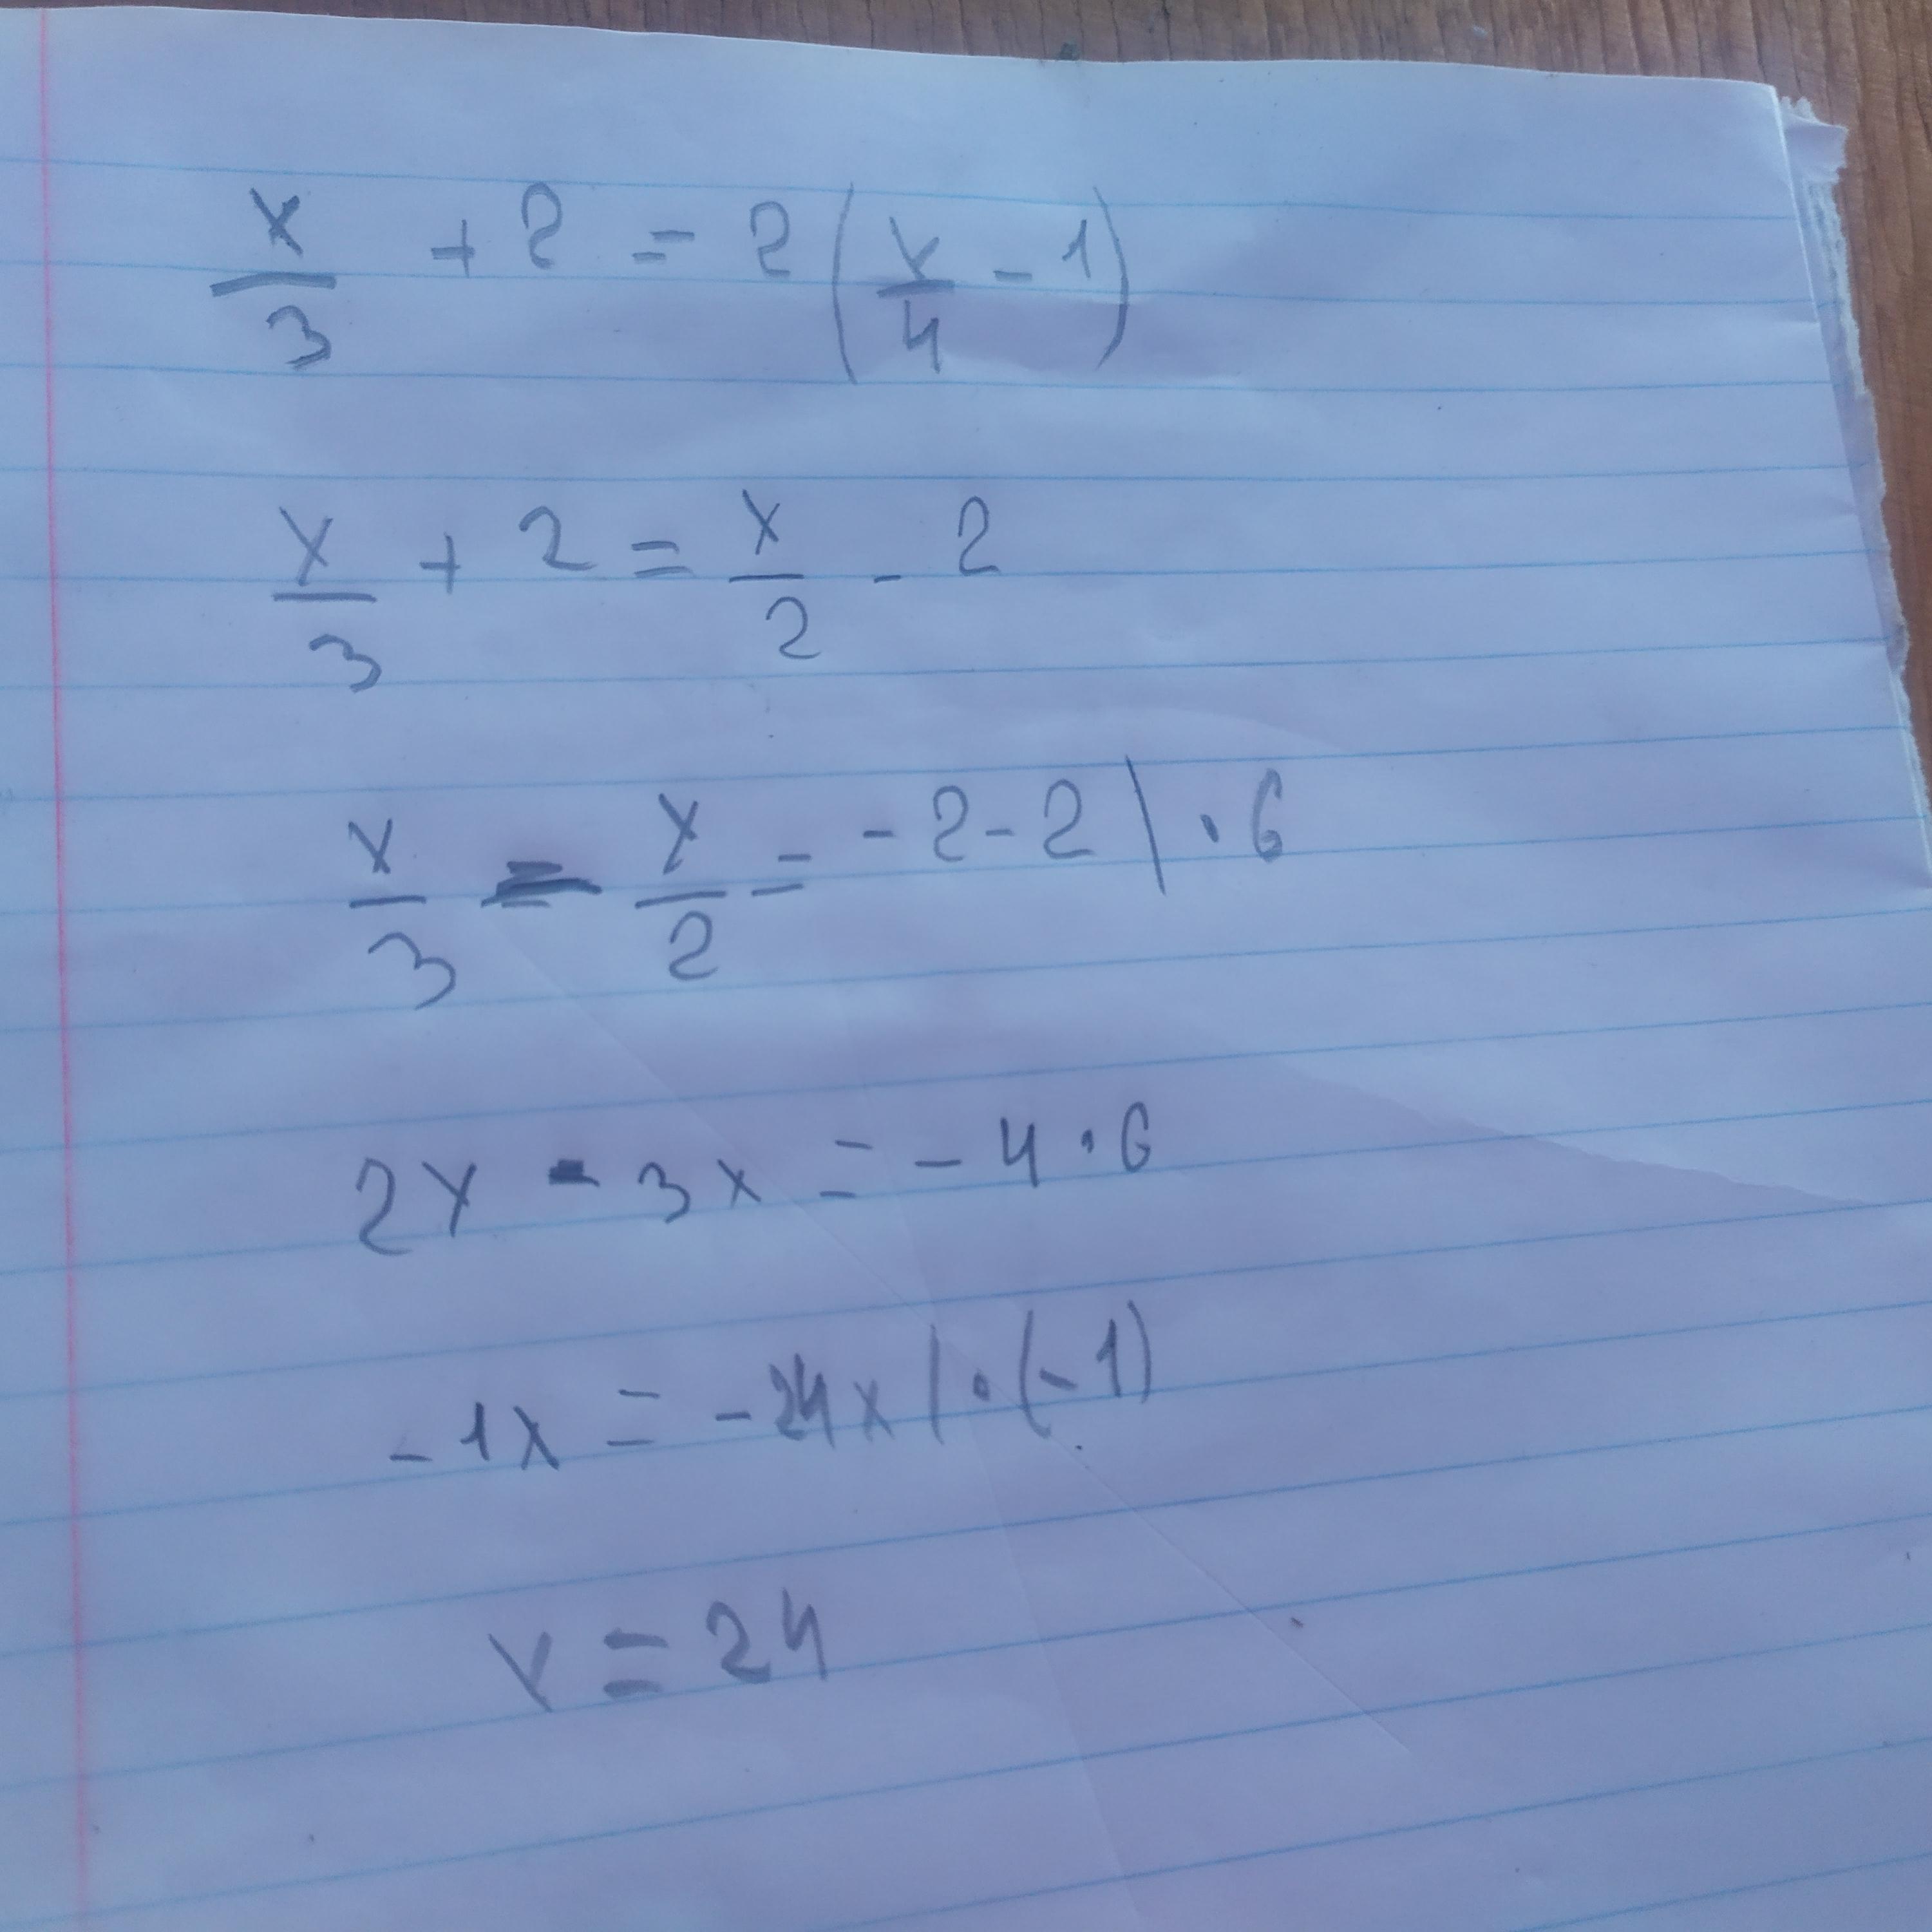 x/3 + 2 = 2(x/4 - 1)
x/3 + 2 = x/2 - 2
x/3 - x/2 = -2-2 | · 6
2x - 3x = -4 · 6
-1x = -24x | · (-1)
x = 24